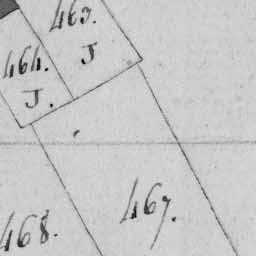 463.
J
464.
J.
467.
468.